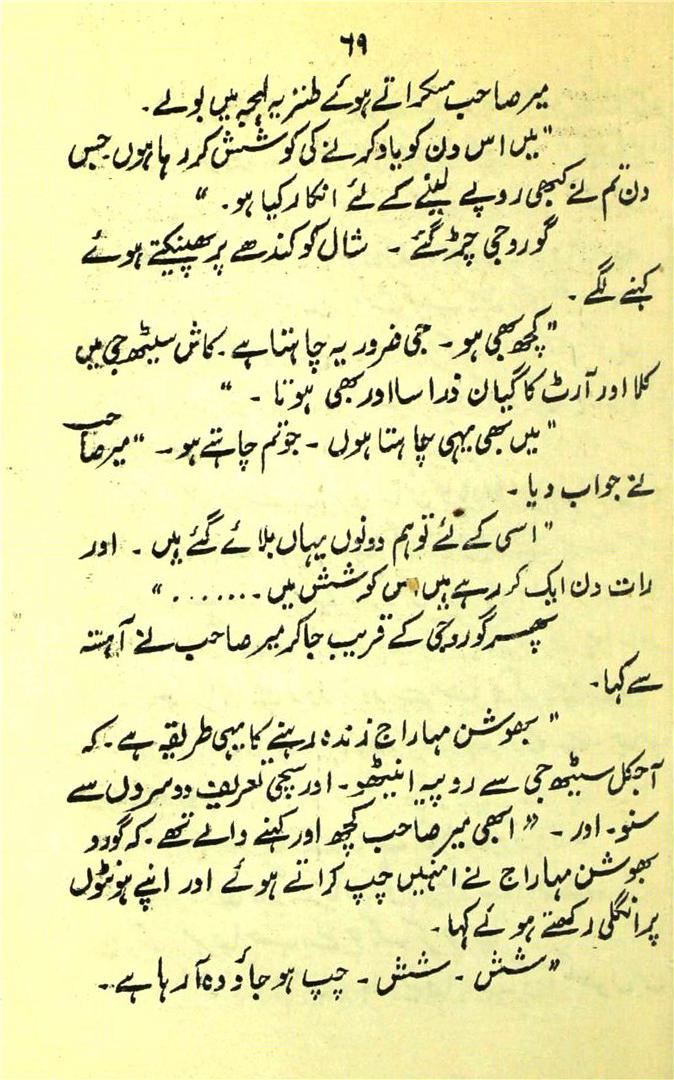 ۶۹
میر صاحب مسکراتے ہوئے طنزیہ لہجہ میں بولے۔
"میں اس دن کو یاد کرنے کی کوشش کر رہا ہوں جس
دن تم نے کبھی روپے لینے کے لئے انکار کیا ہو۔"
گورو جی چڑ گئے ۔ شال کو کندھے پر پھینکتے ہوئے
کہنے لگے۔
"کچھ بھی ہو۔ جی ضرور یہ چاہتا ہے۔ کاش سیٹھ جی میں
کلا اور آرٹ کا گیان ذرا سا اور بھی ہوتا ۔"
"میں بھی یہی چاہتا ہوں ۔ جو تم چاہتے ہو۔" میر صاحب
نے جواب دیا۔
"اسی کے لئے تو ہم دونوں یہاں بلائے گئے ہیں ۔ اور
رات دن ایک کر رہے ہیں اس کوشش میں۔......."
پھر گورو جی کے قریب جا کر میر صاحب نے آہستہ
سے کہا۔
"بھوشن مہاراج زندہ رہنے کا یہی طریقہ ہے۔ کہ
آجکل سیٹھ جی سے روپیہ اینٹھو۔ اور سچی تعریف دوسروں سے
سنو۔ اور ۔" ابھی میر صاحب کچھ اور کہنے والے تھے۔ کہ گورو
بھوشن مہاراج نے انہیں چپ کراتے ہوئے اور اپنے ہونٹوں
پر انگلی رکھتے ہوئے کہا۔
"شش ۔ شش ۔ چپ ہو جاؤ وہ آ رہا ہے۔